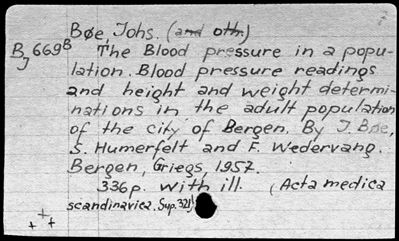 Bøe, Johs. (and oth.)
BJ 669B The Blood pressure in a popu-
lation. Blood pressure readings
and height and weight determi-
nations in the adult population
of the city of Bergen. By J. Bøe,
S. Humerfelt and F. Wedervang.
Bergen, Griegs, 1957.
336p. with ill. (Acta medica
scandinavica. Sup. 321)